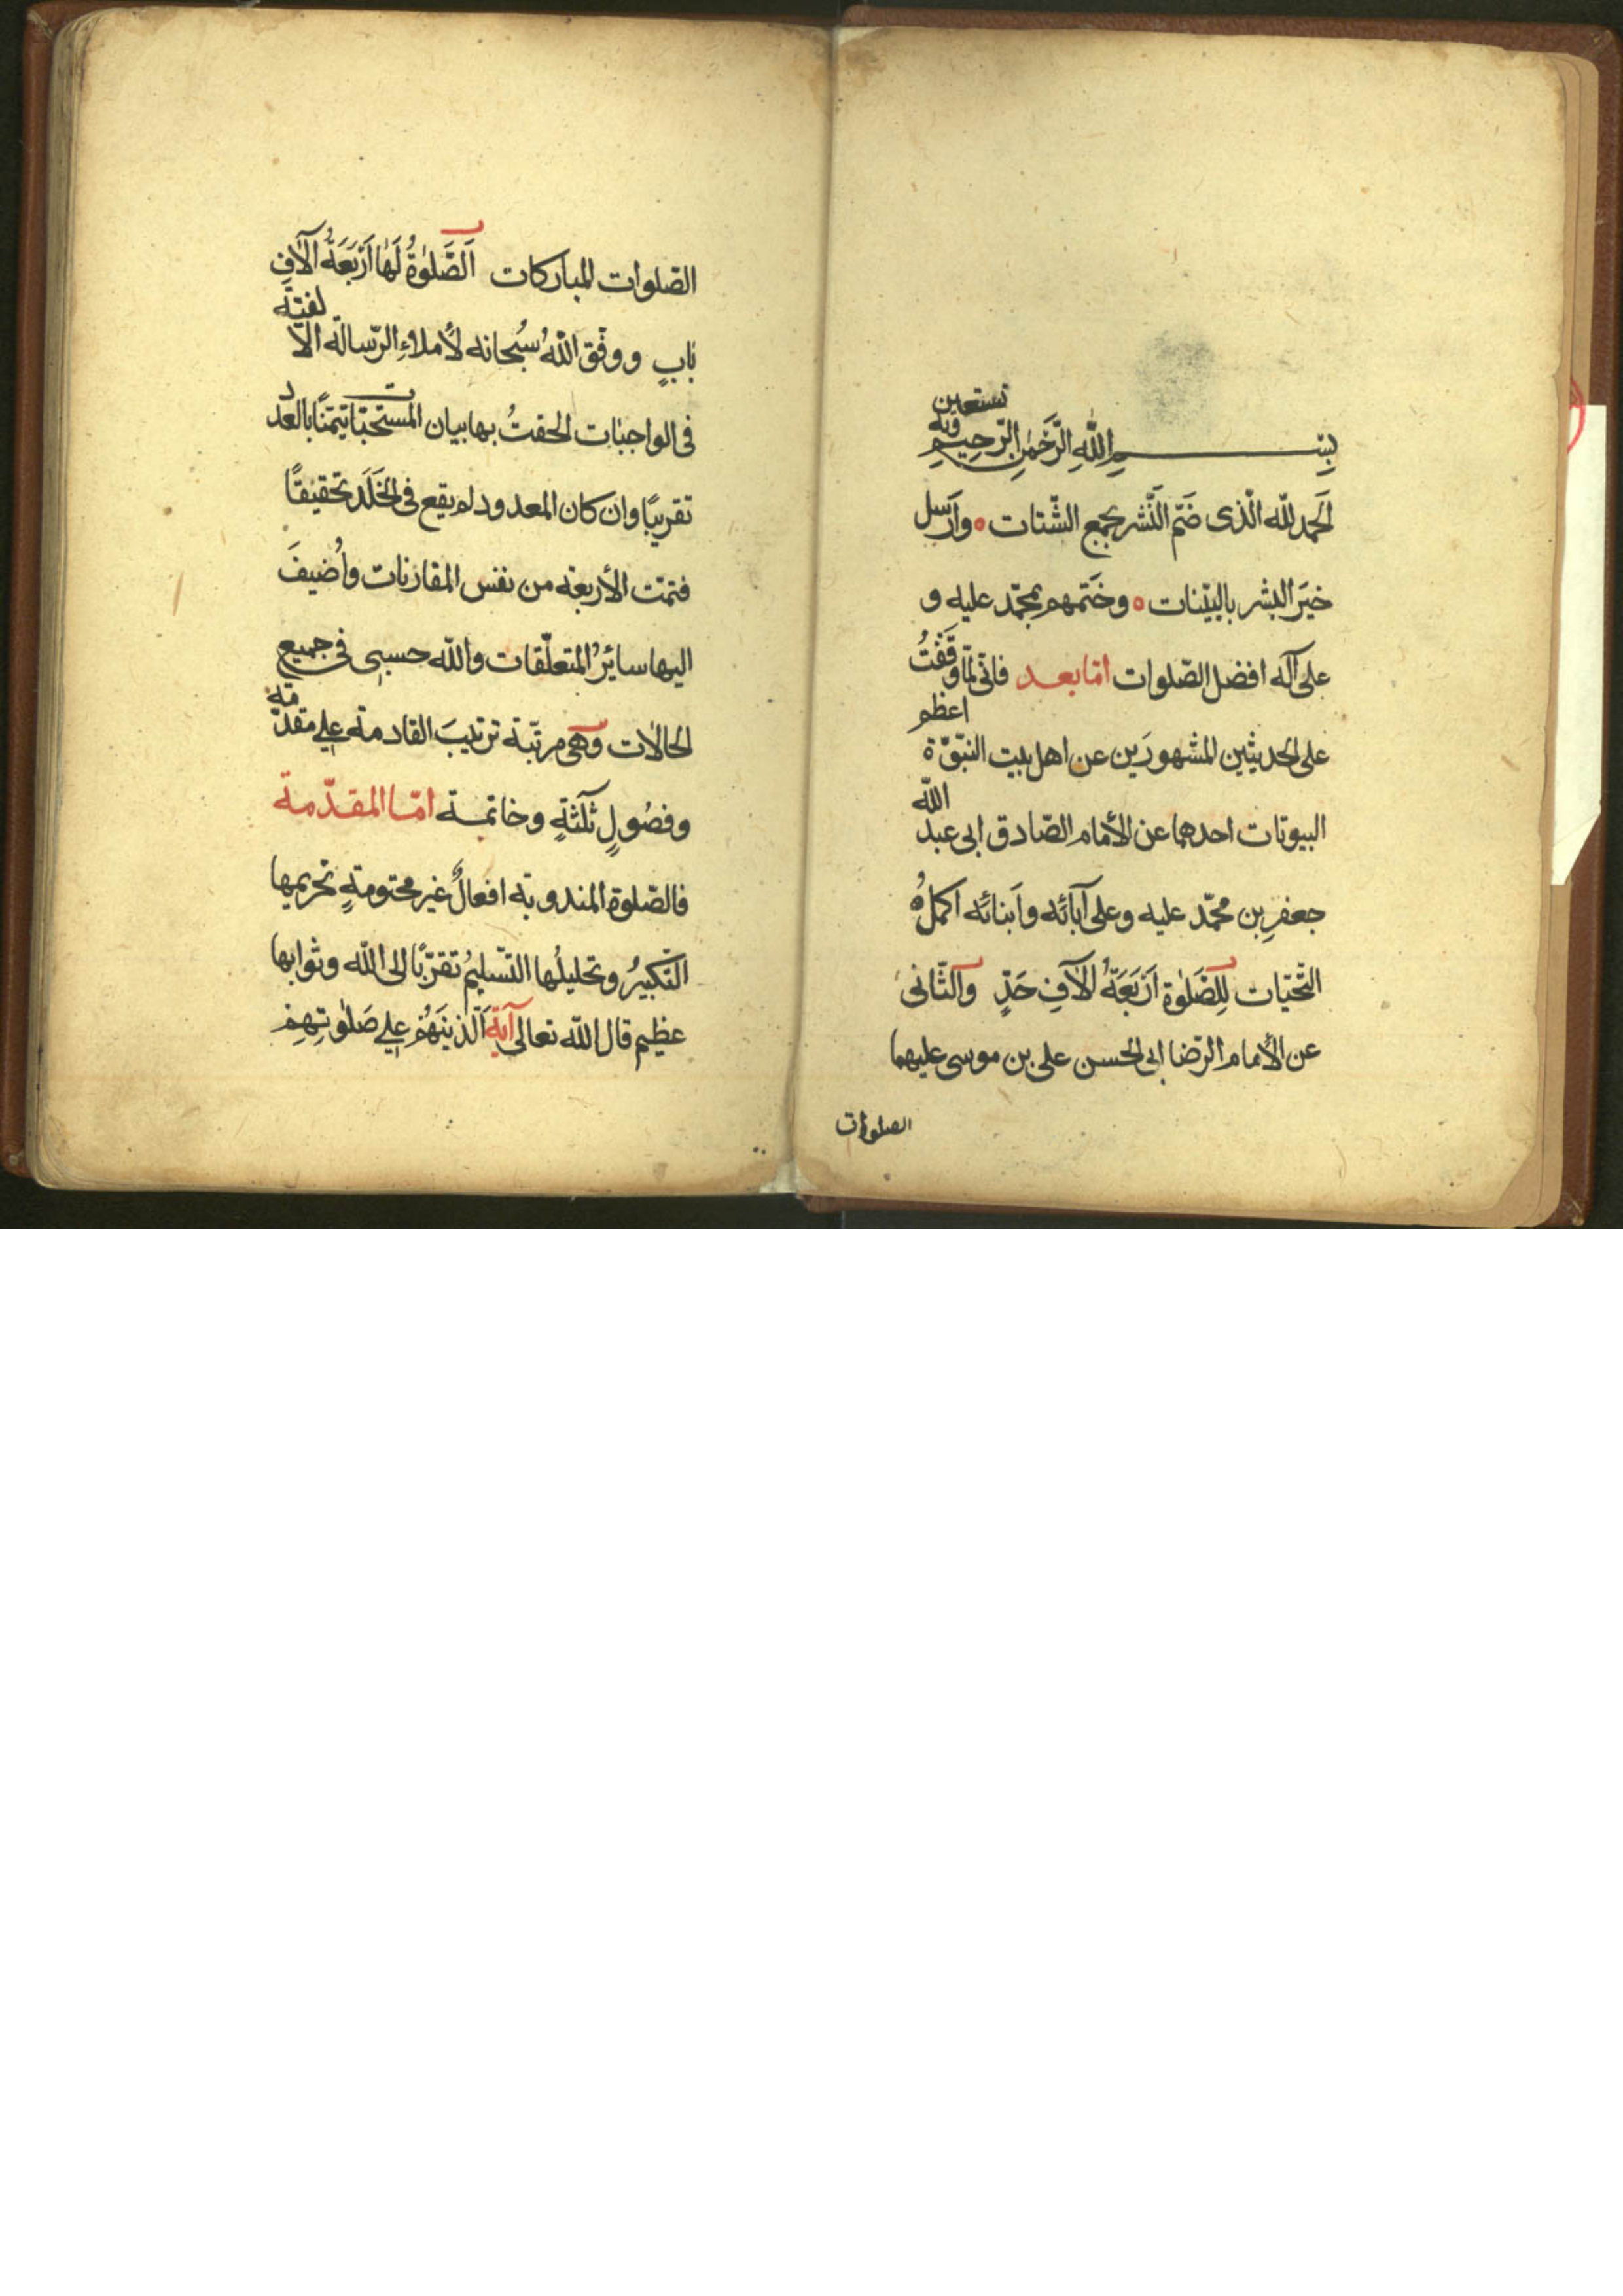 بِسْمِ اللّٰهِ الرَّحْمٰنِ الرَّحِيمِ وبه نستعين
اَلحمد للّه الّذى ضَمّ النّشر بجمع الشّتات ه واَرسل
خيَرَ البشر بالبيّنات ه وخَتمهم بمحمّد عليه و
على آله افضل الصّلوات امّا بعد فانّى لمّا وَقَفْتُ
على الحديثين المشهورَين عن اهل بيت النّبوّة اعظم
البيوتات احدهما عن الأمام الصّادق ابى عبد اللّه
جعفرِ بن محمّد عليه وعلى آبائه واَبنائه اكملُ
التّحيّات لِلصَّلوٰة اَرْبَعَةُ آلآفِ حَدٍّ والثّانى
عن الأمام الرّضا ابى الحسن على بن موسى عليهما
الصلوات
الصّلوات المباركات اَلصَّلوٰةُ لَهٰا اَرْبَعَةُ آلآفِ
بٰابٍ ووفّق اللّهُ سُبحانه لأملاءِ الرّسالة الألفيّة
فى الواجبٰات الحقتُ بها بيان المستحبّات تيمّنًا بالعدد
تقريبًا وان كان المعدود لم يقع فى الخَلَد تحقيقًا
فتمّت الأربعة من نفس المقارنات واُضيفَ
اليها سائرُ المتعلّقات واللّه حسبى فى جميع
الحالات وهى مرتّبة ترتيبَ القادمة على مقدّمة
وفصُولٍ ثلٰثةٍ وخاتمة امّا المقدّمة
فالصّلوة المندوبة افعالٌ غير محتومةٍ تحريمها
التّكبيرُ وتحليلُها التّسليمُ تقرّبًا الى اللّه وثوابها
عظيم قال اللّه تعالى آية اَلّذينَ هُمْ على صَلوٰتِهِمْ